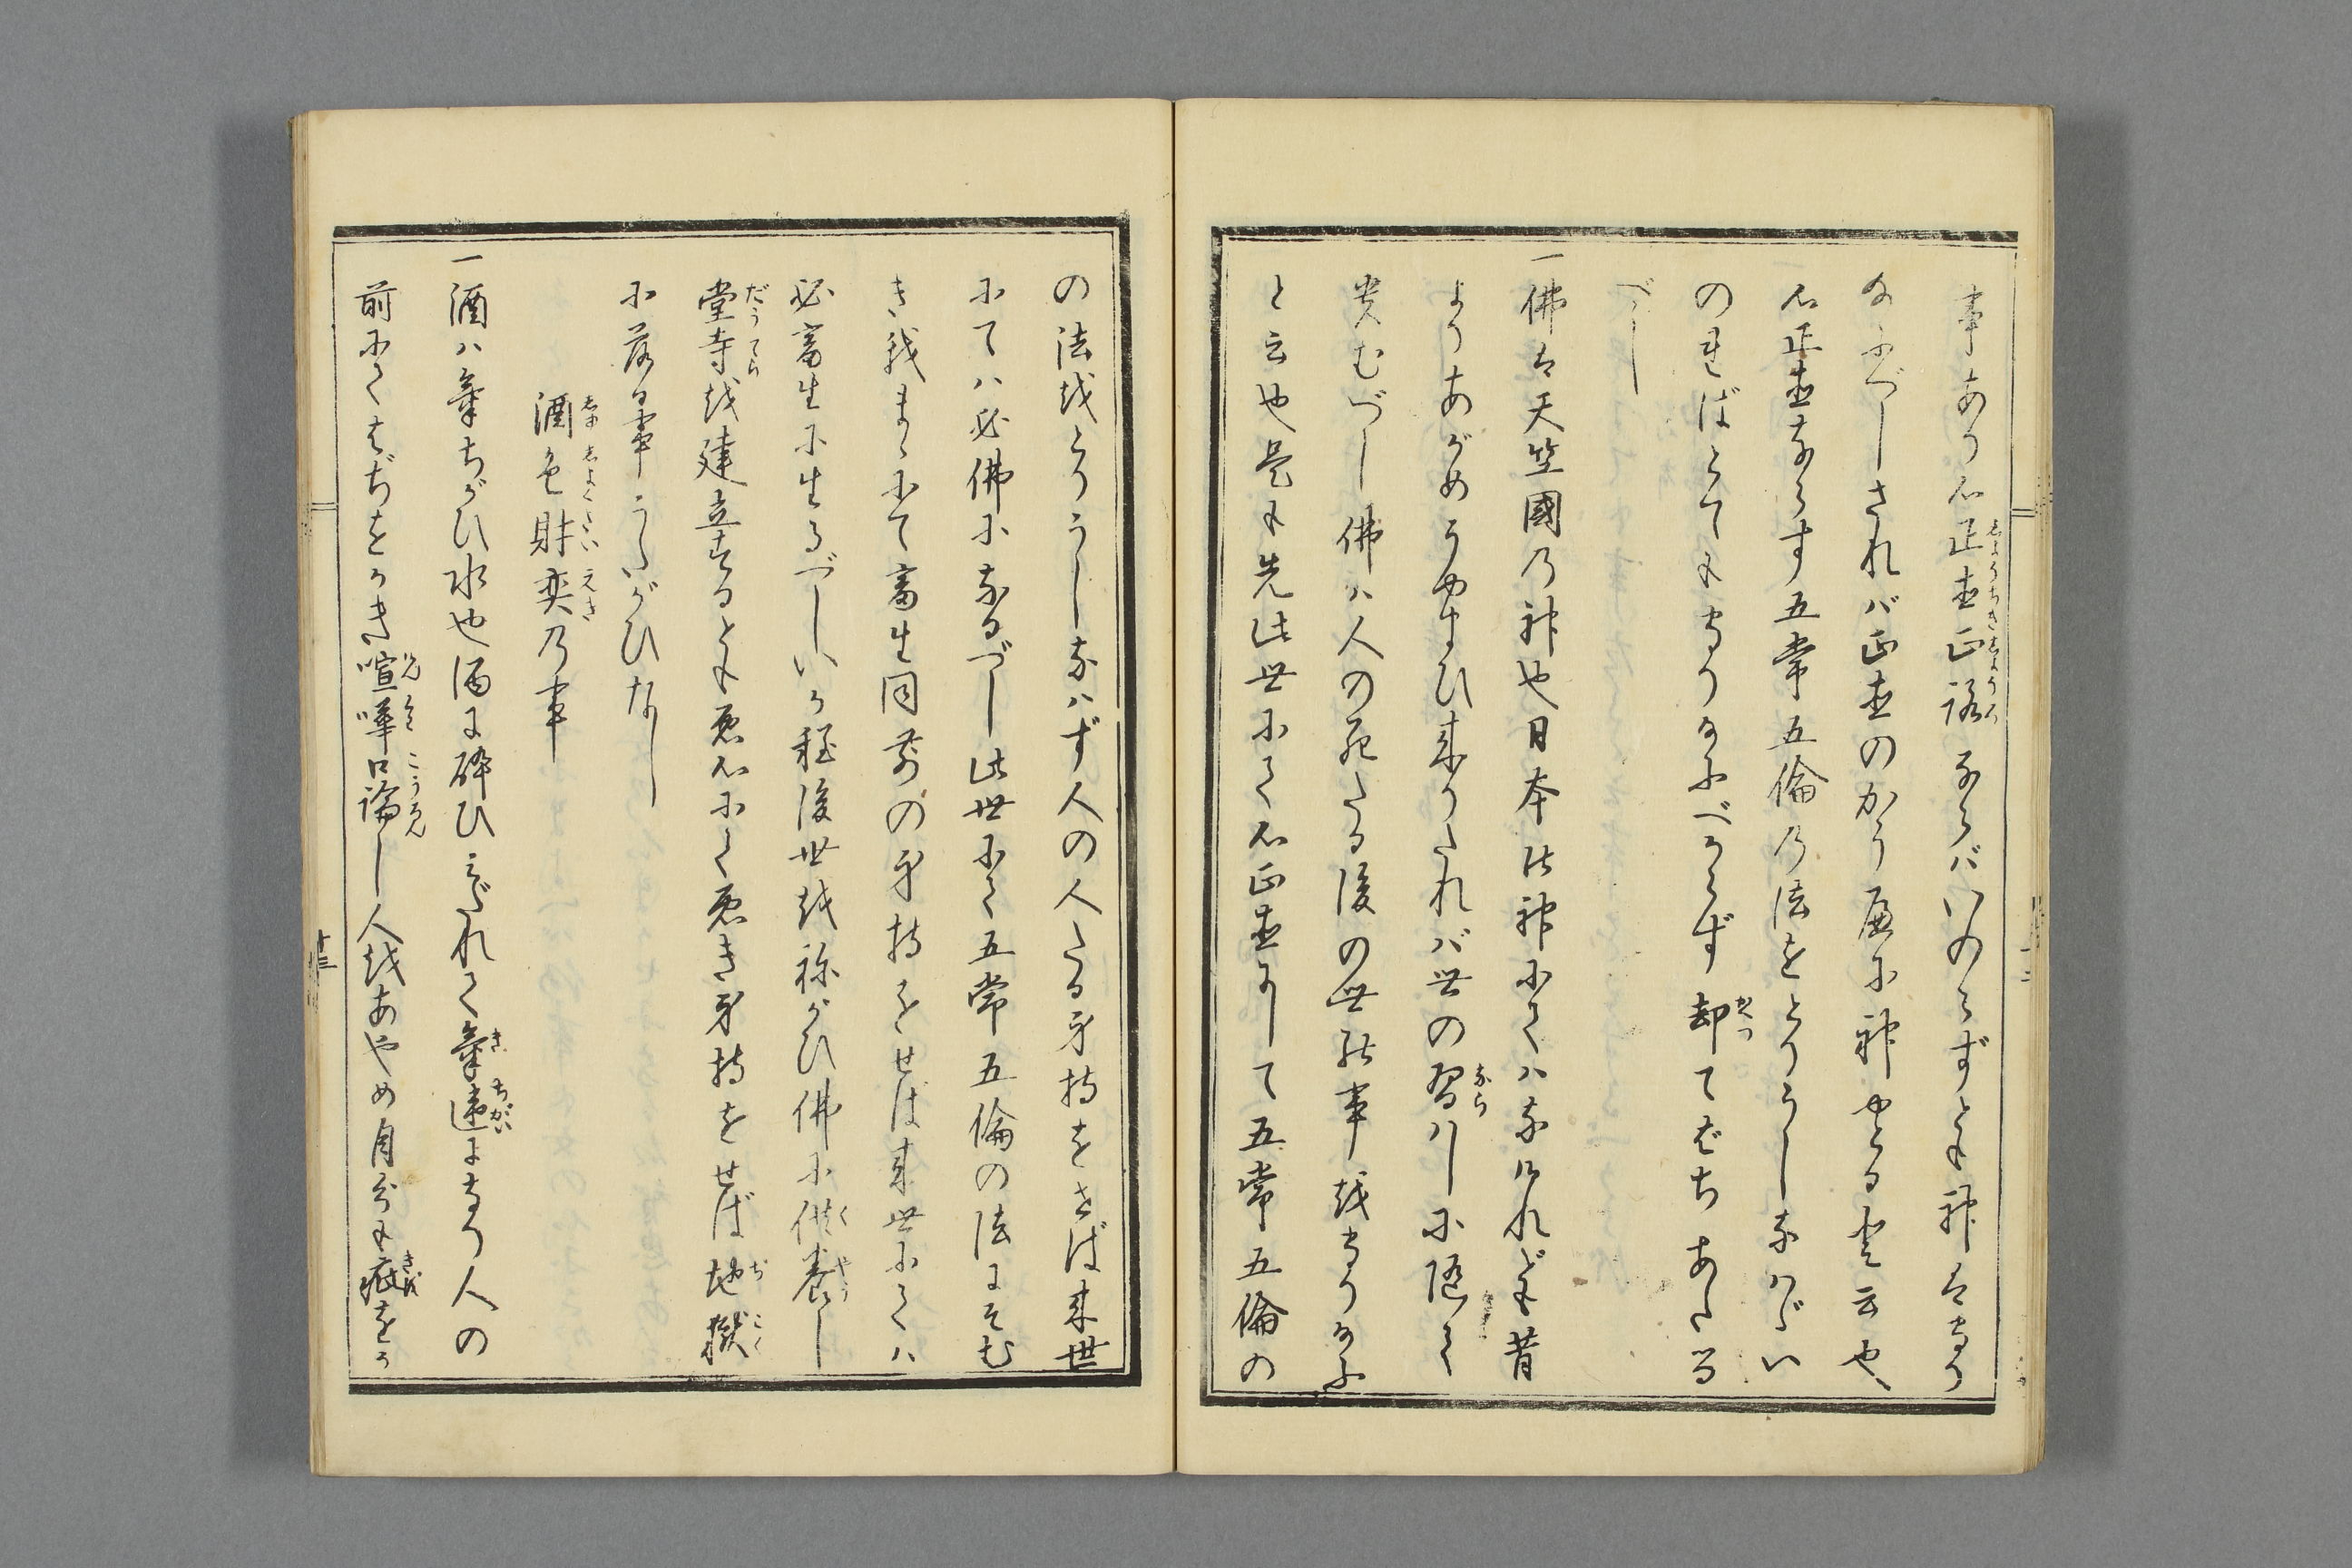 事あり心正直正路ならバいのらずとも神は守り
給ふべしされバ正直のかうべに神やどると云也
心正直ならす五常五倫乃法をとりうしなハゞい
のればとても守り給ふべからず却てばちあたる
べし
一佛は天竺國乃神也日本の神にてハなけれども昔
よりあがめうやまひ来りたれバ世の習ハしに随て
貴むべし佛ハ人の死たる後の世の事を守り給ふ
と云也是も先此世にて心正直にして五常五倫の
の法をとりうしなハず人の人たる身持をせば来世
にてハ必佛になるべし此世にて五常五倫の法にそむ
き我まゝにて畜生同前の身持をせば来世にてハ
必畜生に生るべしいか程後世を祢がひ佛に供養し
堂寺を建立するとも悪心にて悪き身持をせば地獄
に落る事うたがひなし
酒色財奕乃事
一酒ハ氣ちがひ水也酒に酔ひみだれて氣違になり人の
前にてはぢをかき喧嘩口論し人をあやめ自分も疵をか
十三